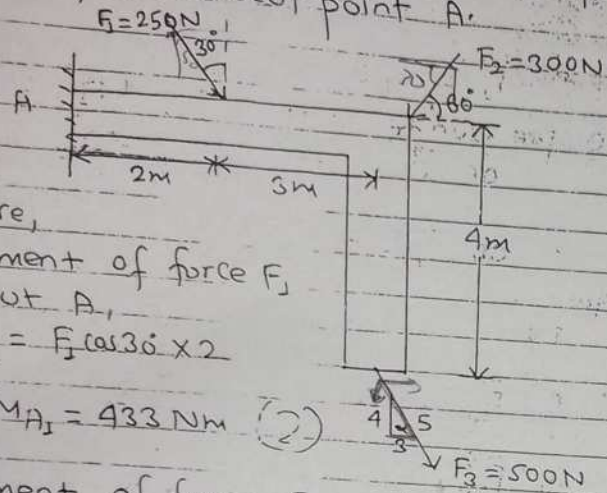 point A.
F₁=250N
30°
F₂=300N
60°
A
2m
3m
4m
re,
ment of force F₁
ut A,
= F₁ cos30° × 2
M_A₁ = 433 Nm (2)
4 5
3
F₃=500N
ment of f